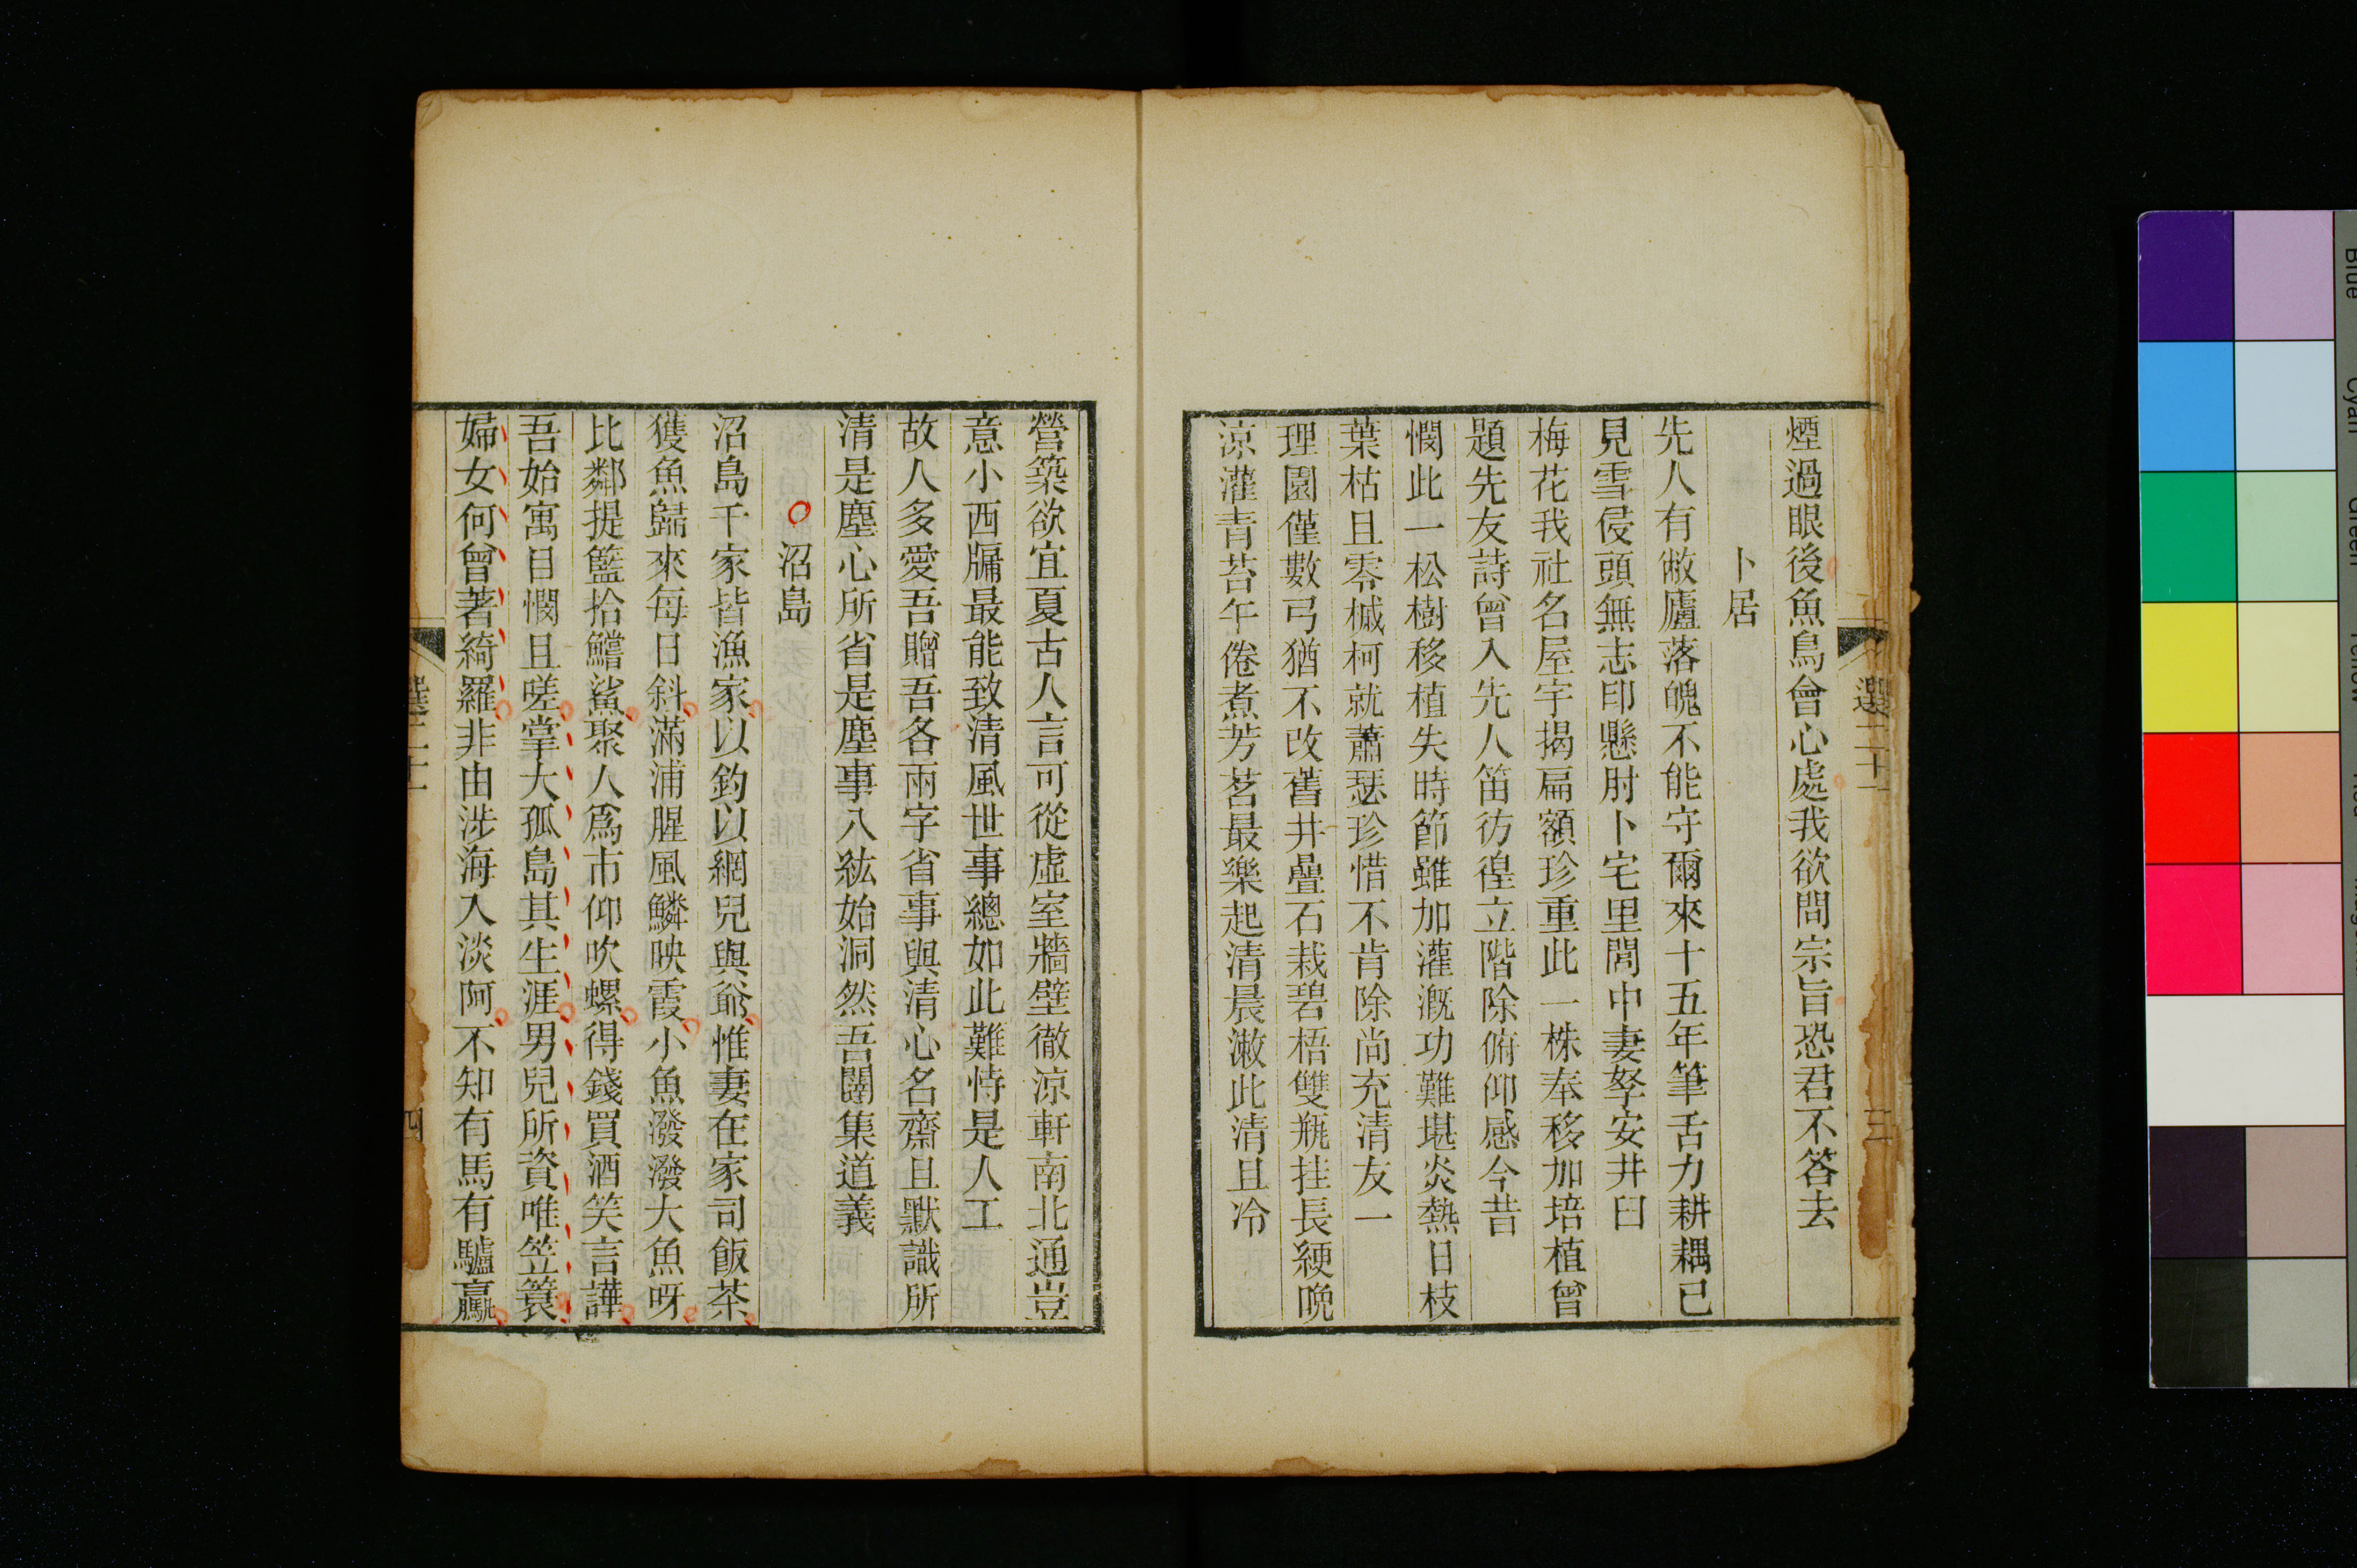 煙過眼後魚鳥會心處我欲問宗旨恐君不答去
卜居
先人有敝廬落魄不能守爾來十五年筆舌力耕耦已
見雪侵頭無志印懸肘卜宅里閭中妻孥安井臼
梅花我社名屋宇揭扁額珍重此一株奉移加培植曾
題先友詩曾入先人笛彷徨立階除俯仰感今昔
憫此一松樹移植失時節雖加灌漑功難堪炎熱日枝
葉枯且零槭柯就蕭瑟珍惜不肯除尚充清友一
理園僅數弓猶不改舊井疊石栽碧梧雙瓶挂長綆晩
涼灌青苔午倦煮芳茗最樂起清晨漱此清且冷
選二十一
三
營築欲宜夏古人言可從虛室牆壁徹涼軒南北通豈
意小西牖最能致清風世事總如此難恃是人工
故人多愛吾贈吾各兩字省事與清心名齋且默識所
清是塵心所省是塵事八紘始洞然吾闢集道義
沼島
沼島千家皆漁家以釣以網兒與爺惟妻在家司飯茶
獲魚歸來每日斜滿浦腥風鱗映霞小魚潑潑大魚呀
比鄰提籃拾鱨鯊聚人爲市仰吹螺得錢買酒笑言譁
吾始寓目憫且嗟掌大孤島其生涯男兒所資唯笠簑
婦女何曾著綺羅非由涉海入淡阿不知有馬有驢驘
選二十一
四